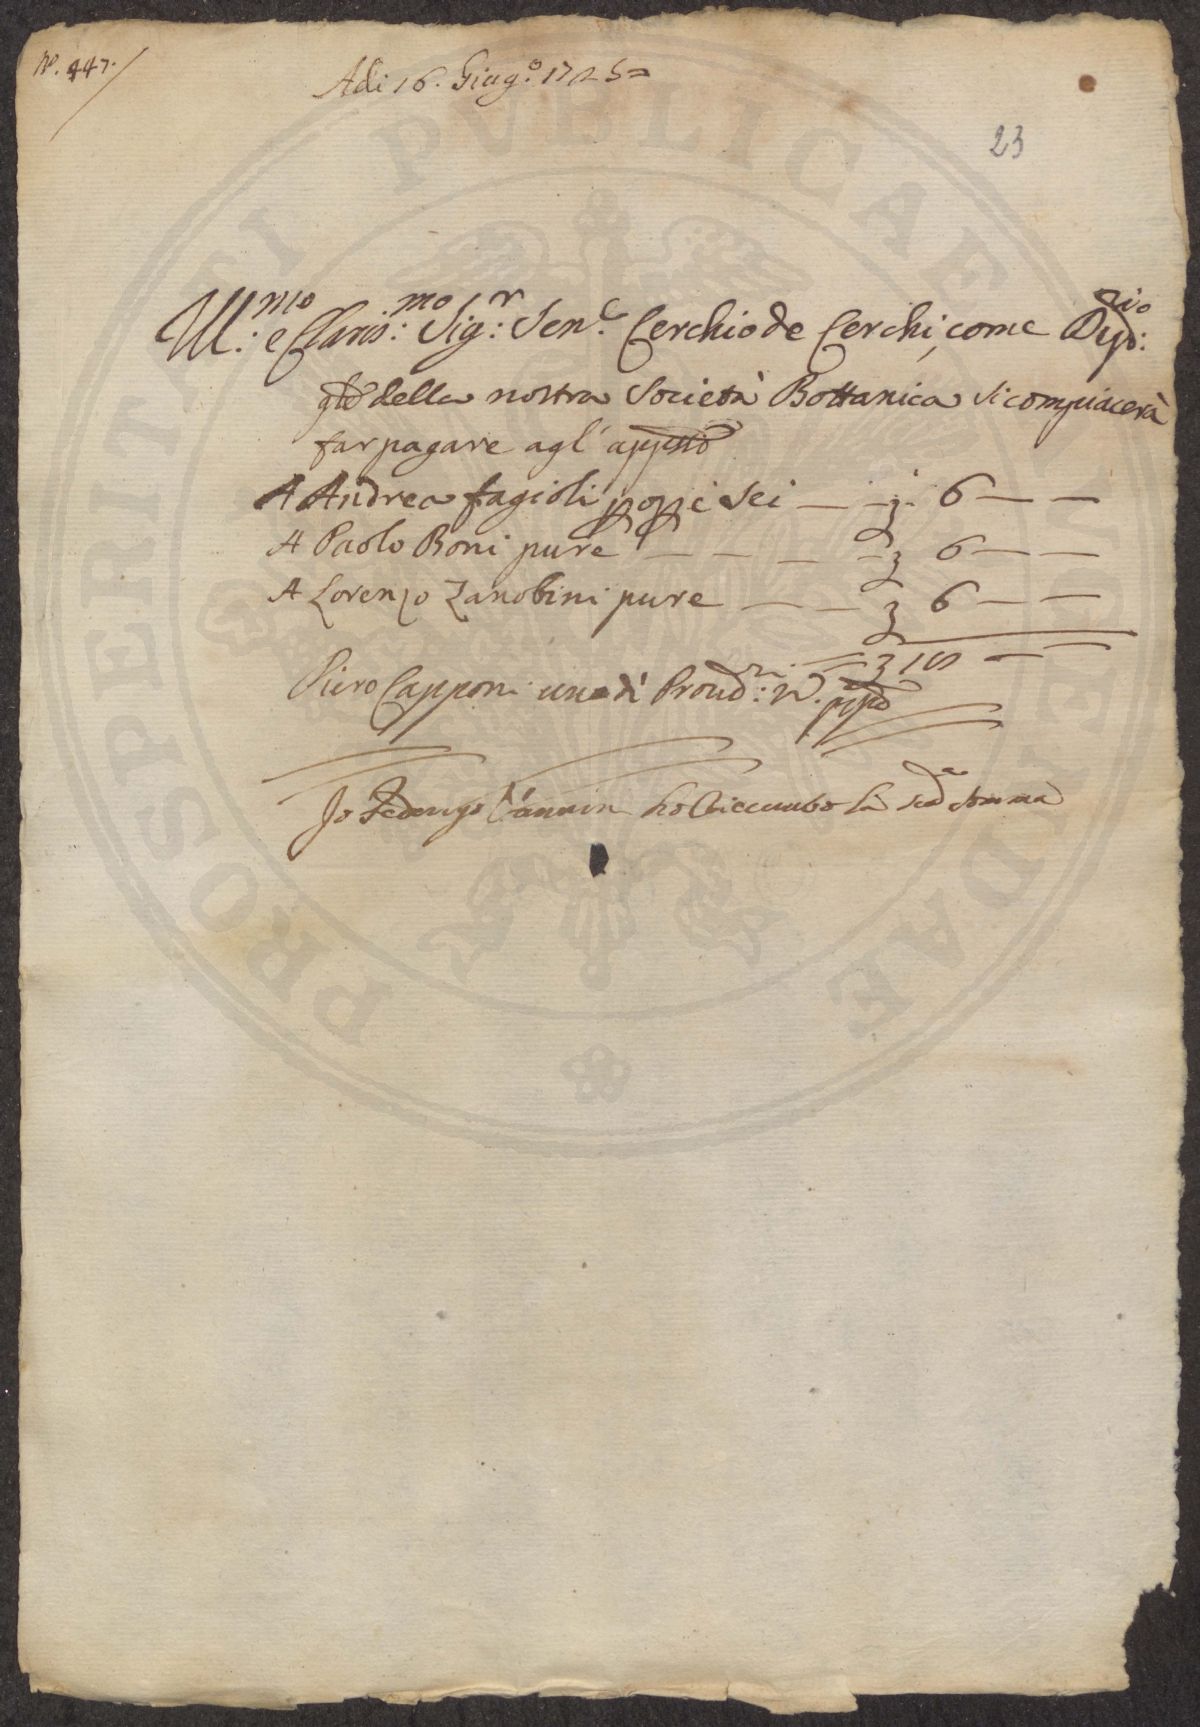 N.º 447.
Adi 16. Giug.º 1725
23
Ill:mo e Claris:mo Sig:r Sen.e Cerchio de Cerchi, come Dep:rio
gle della nostra Società Bottanica si compiacerà
far pagare agl' appiedi
A Andrea fagioli pezze Sei — — 6 — —
A Paolo Boni pure — — — 6 — —
A Lorenzo Zanobini pure — — 6 — —
18 — —
Piero Capponi uno di Proud:ri
Io Federigo ho Riceuuto la sud.a somma
PROSPERITATI PVBLICAE AVGENDAE